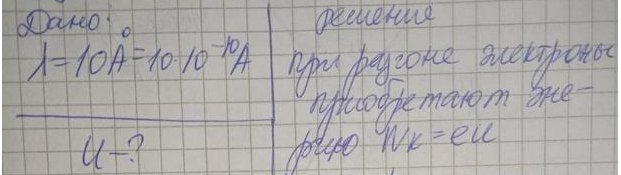 Дано:
λ=10Å=10·10⁻¹⁰А
U-?
решение
при разгоне электроны
приобретают эне-
ргию Wк=eU